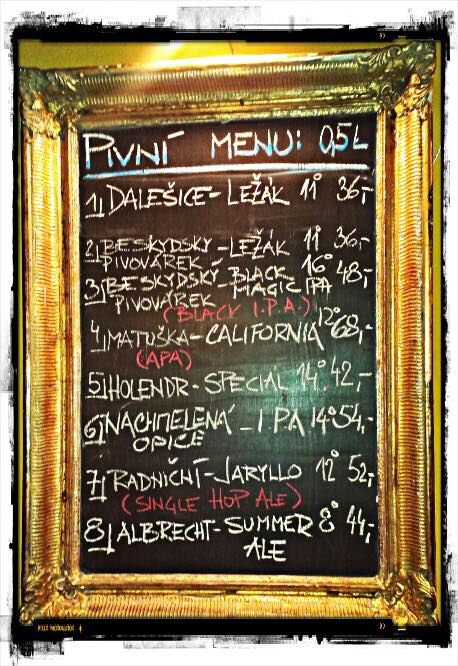 PIVNÍ MENU: 0,5L
1) DALEŠICE - LEŽÁK 11° 36,-
2) BESKYDSKÝ - LEŽÁK 11° 36,-
PIVOVÁREK
3) BESKYDSKÝ - BLACK 16° 48,-
PIVOVÁREK MAGIC IPA
(BLACK I.P.A.)
4) MATUŠKA - CALIFORNIA 12° 68,-
(APA)
5) HOLENDR - SPECIAL 14° 42,-
6) NACHMELENÁ - I.PA 14° 54,-
OPICE
7) RADNIČNÍ - JARYLLO 12° 52,-
(SINGLE HOP ALE)
8) ALBRECHT - SUMMER 8° 44,-
ALE